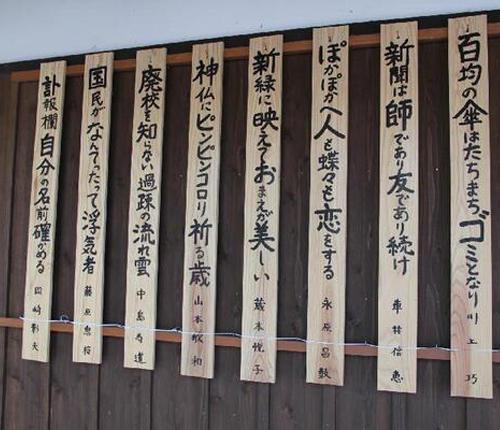 百均の傘はたちまちゴミとなり 川上巧
新聞は師であり友であり続け 車林信恵
ぽかぽかへ人も蝶々も恋をする 永原昌鼓
新緑に映えておまえが美しい 蔵本悦子
神仏にピンピンコロリ祈る歳 山本敏和
廃校を知らない過疎の流れ雲 中島寿道
国民がなんてったって浮気者 藤原
訃報欄自分の名前確かめる 岡崎